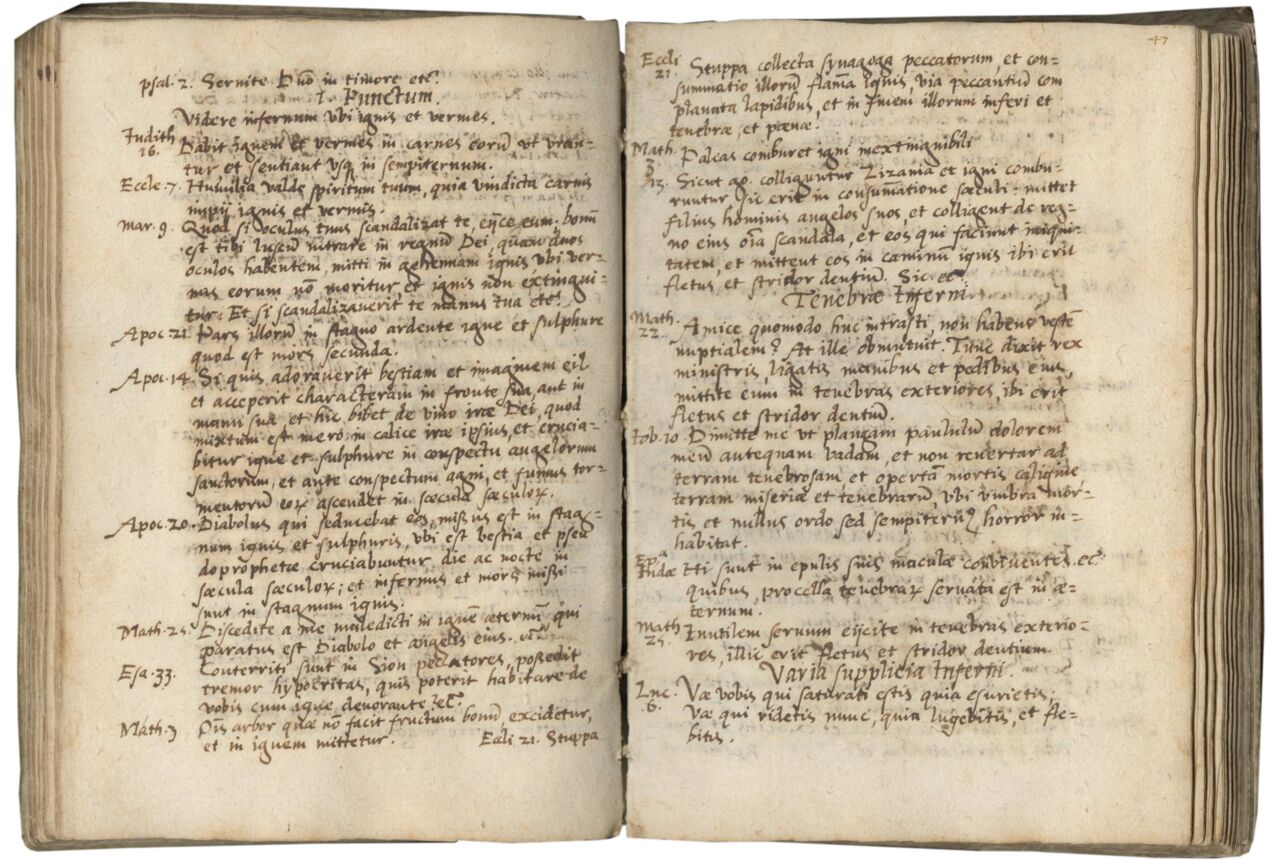 psal. 2. Seruite Dño in timore etc.
1. Punctum.
Videre infernum vbi ignis et vermes.
Judith 16. Dabit ignem et vermes in carnes eorũ, vt vran-
tur et sentiant vsq; in sempiternum.
Eccle. 7. Humilia valde spiritum tuum, quia vindicta carnis
impij ignis et vermis.
mar. 9. Quod si oculus tuus scandalizat te, eijce eum. bonũ
est tibi luscũ intrare in regnũ Dei, quam duos
oculos habentem, mitti in gehennam ignis vbi ver-
mis eorum nõ moritur et ignis non extingui-
tur. Et si scandalizauerit te manus tua etc.
Apoc. 21. Pars illorũ in stagno ardente igne et sulphure
quod est mors secunda.
Apoc. 14. Si quis adorauerit bestiam et imaginem eiꝰ
et acceperit characteram in fronte sua, aut in
manu sua et hic bibet de vino iræ Dei, quod
mixtum est mero in calice iræ ipsius, et crucia-
bitur igne et sulphure in conspectu angelorum
sanctorum, et ante conspectum agni, et fumus tor-
mentorũ eoꝝ ascendet in sæcula sæculoꝝ.
Apoc. 20. Diabolus qui seducebat eos, missus est in stag-
num ignis et sulphuris, vbi est bestia et pseu
doprophetæ cruciabuntur die ac nocte in
sæcula sæculoꝝ; et infernus et mors missi
sunt in stagnum ignis.
Math. 25. Discedite a me maledicti in ignẽ æternũ qui
paratus est Diabolo et angelis eius. etc.
Esa. 33. Conterriti sunt in Sion peccatores, possedit
tremor hypocritas, quis poterit habitare de
vobis cum igne deuorante &c.
Math. 3 Oĩs arbor quæ nõ facit fructum bonũ, excidetur,
et in ignem mittetur. Eccli 21. Stuppa
47
Eccli 21. Stuppa collecta synagoga peccatorum, et con-
summatio illorũ flamma ignis, via peccantiũ com
planata lapidibus, et in finem illorum inferi et
tenebræ, et pœnæ.
Math. 3 Paleas comburet igni inextinguibili
13. Sicut go. colliguntur Zizania et igni combu-
runtur sic erit in consumatione sæculi. mittet
filius hominis angelos suos, et colligent de reg-
no eius oĩa scandala, et eos qui faciunt iniqui-
tatem, et mittent eos in caminũ ignis ibi erit
fletus et stridor dentiũ. Sic. ec.
Tenebræ Inferni.
Math. 22. Amice quomodo huc intrasti, non habens vestẽ
nuptialem? At ille obmutuit. Tunc dixit rex
ministris, ligatis manibus et pedibus eius,
mittite eum in tenebras exteriores, ibi erit
fletus et stridor dentiũ.
Iob. 10 Dimitte me vt plangam paululũ dolorem
meũ antequam vadam, et non reuertar ad
terram tenebrosam, et opertã mortis caligine
terram miseriæ et tenebrarũ, vbi vmbra mor-
tis et nullus ordo sed sempiternꝰ horror in-
habitat.
Epᵃ Iudæ Hi sunt in epulis suis maculæ conuiuentes. ec.
quibus, procella tenebraꝝ seruata est in æ-
ternum.
Math 25. Inutilem seruum eijcite in tenebras exterio-
res, illic erit fletus et stridor dentium.
Varia supplicia Inferni.
Luc. 6. Væ vobis qui saturati estis quia esurietis,
Væ qui ridetis nunc, quia lugebitis, et fle-
bitis.